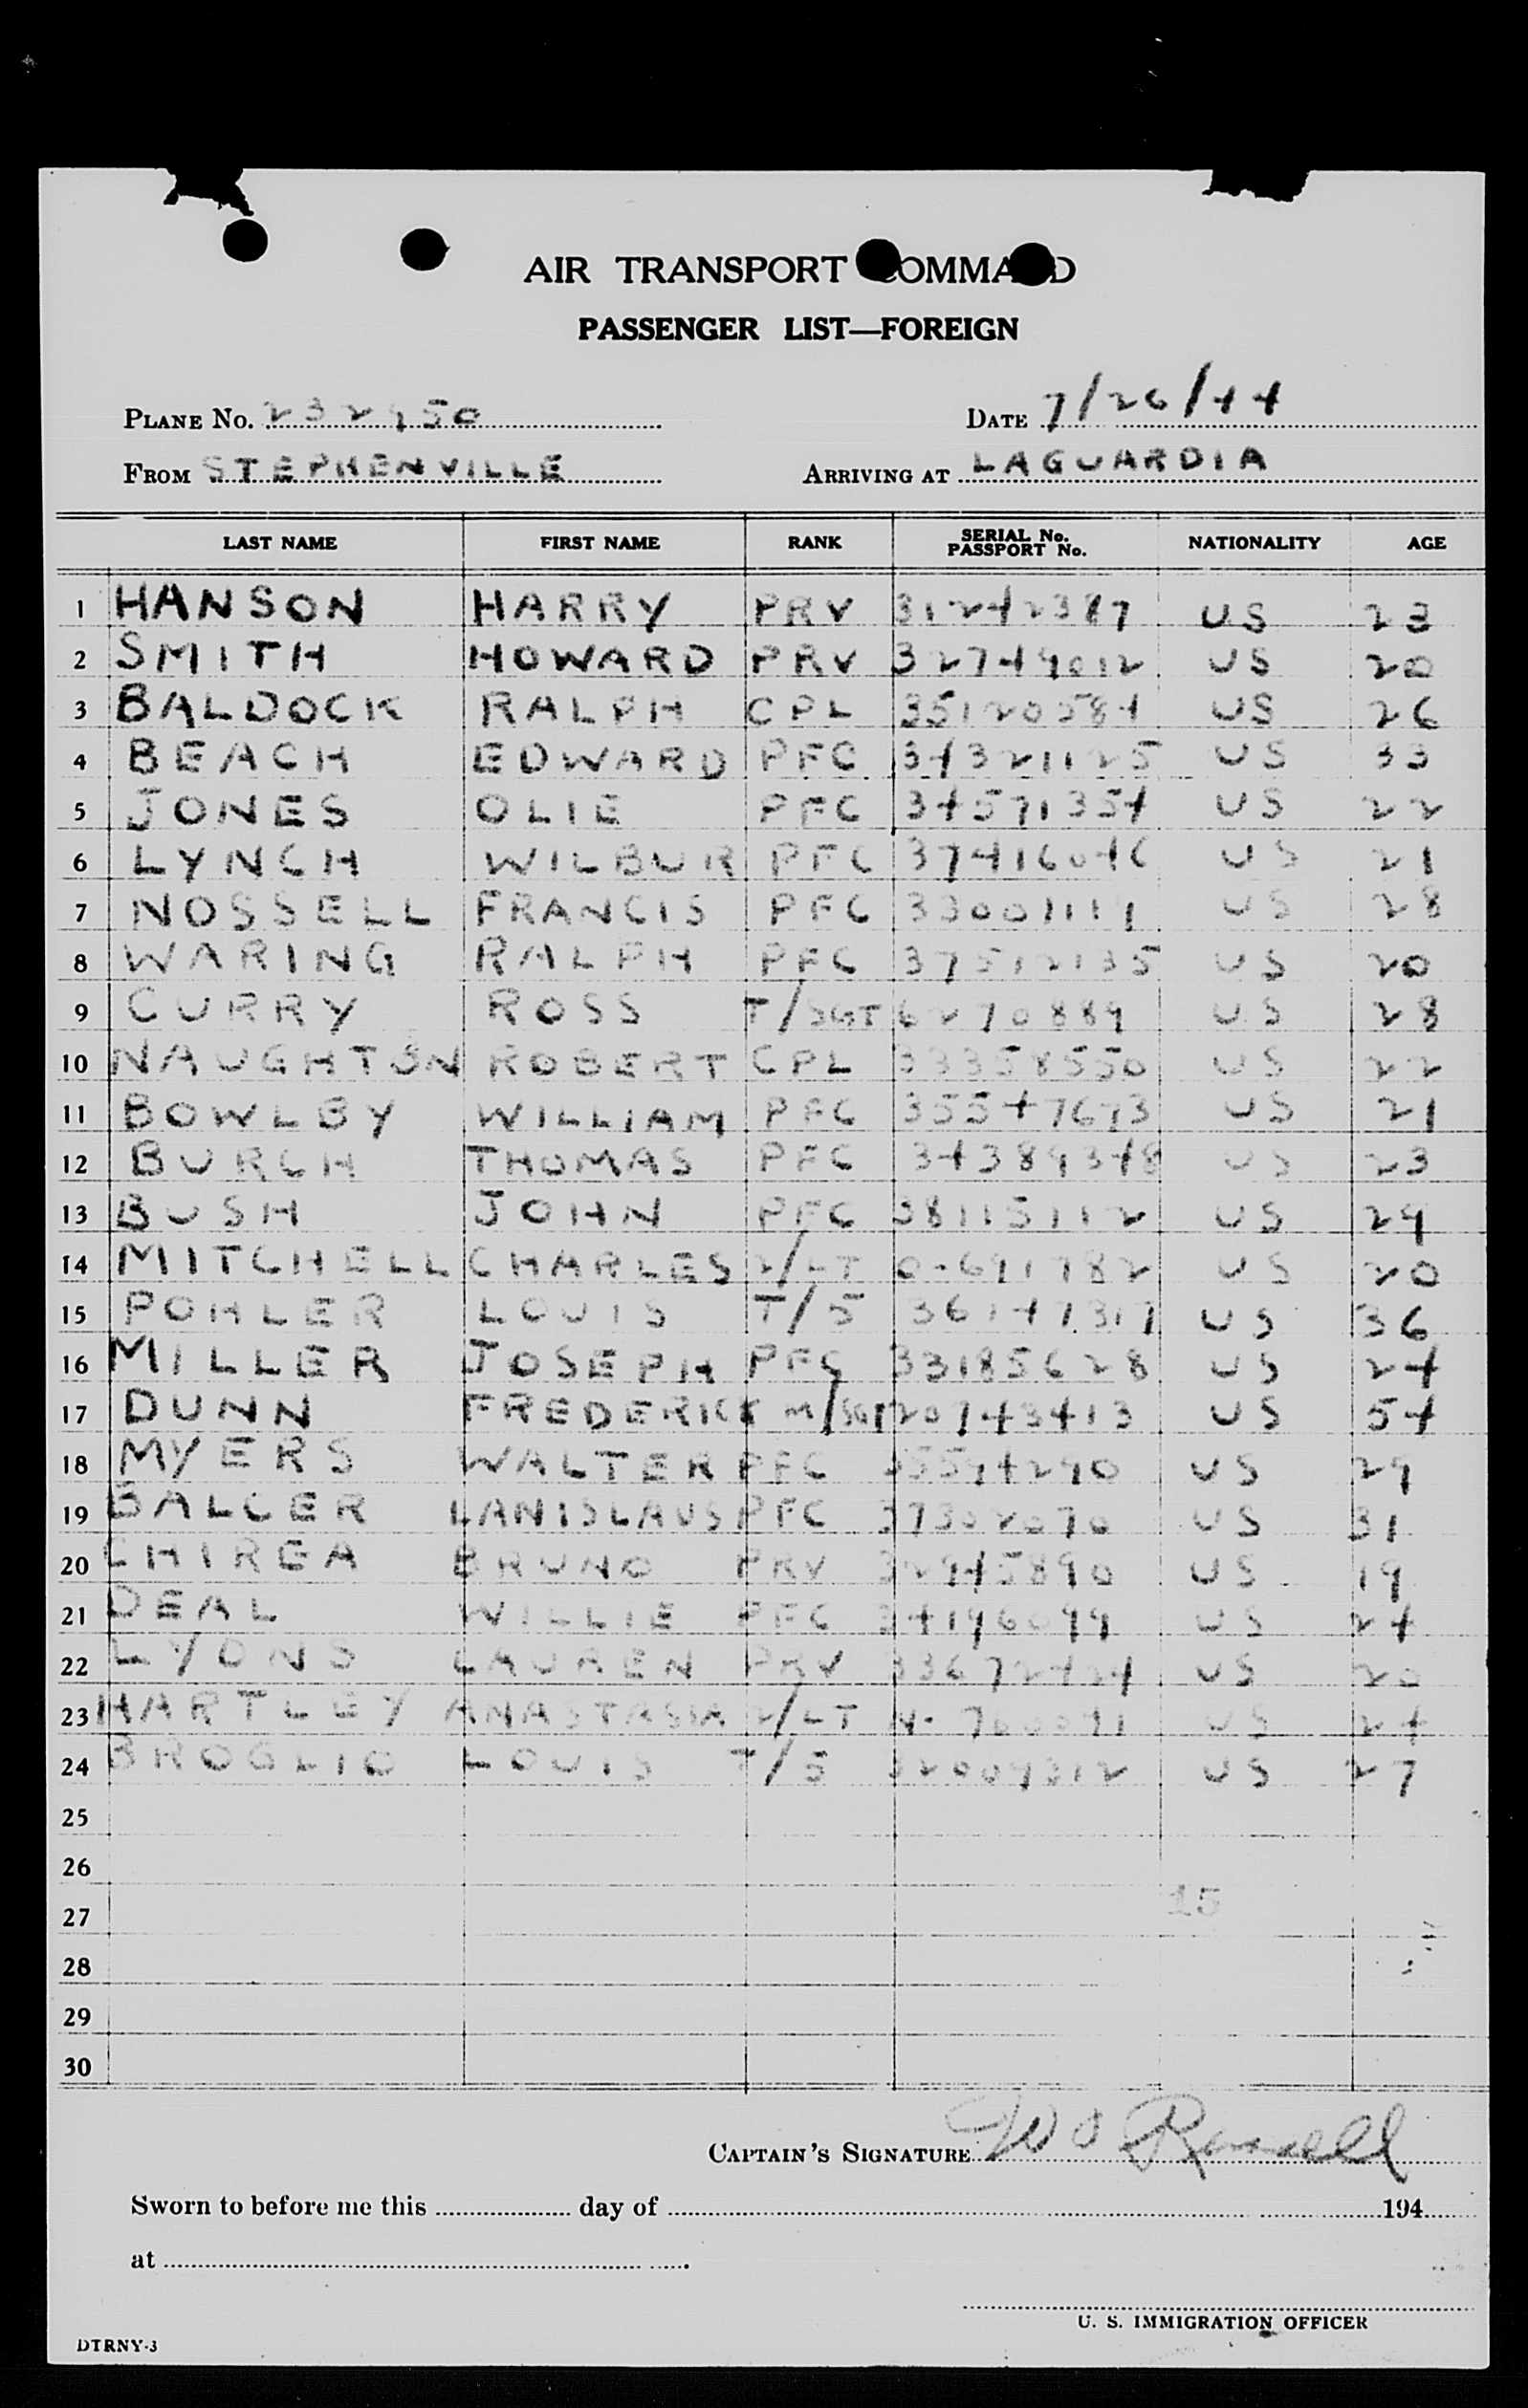 AIR TRANSPORT COMMAND
PASSENGER LIST—FOREIGN
PLANE No. 232950 DATE 7/26/44
FROM STEPHENVILLE ARRIVING AT LAGUARDIA
LAST NAME FIRST NAME RANK SERIAL No. PASSPORT No. NATIONALITY AGE
1 HANSON HARRY PRV 31242387 US 23
2 SMITH HOWARD PRV 32749012 US 20
3 BALDOCK RALPH CPL 35120584 US 26
4 BEACH EDWARD PFC 34321125 US 33
5 JONES OLIE PFC 34571354 US 22
6 LYNCH WILBUR PFC 37416046 US 21
7 NOSSELL FRANCIS PFC US 28
8 WARING RALPH PFC 37512135 US 20
9 CURRY ROSS T/SGT 6270889 US 28
10 NAUGHTON ROBERT CPL 33358550 US 22
11 BOWLBY WILLIAM PFC 35547673 US 21
12 BURCH THOMAS PFC 34389348 US 23
13 BUSH JOHN PFC 38115112 US 29
14 MITCHELL CHARLES 2/LT O-691782 US 20
15 POHLER LOUIS T/5 36147317 US 36
16 MILLER JOSEPH PFC 33185628 US 24
17 DUNN FREDERICK M/SGT 20743413 US 54
18 MYERS WALTER PFC 35594290 US 29
19 BALCER LANISLAUS PFC 37302070 US 31
20 CHIRGA BRUNO PRV 32945890 US 19
21 DEAL WILLIE PFC 34196099 US 24
22 LYONS LAUREN PRV 33672424 US 20
23 HARTLEY ANASTASIA 2/LT US 24
24 BROGLIO LOUIS T/5 32009312 US 27
25
26
27 15
28
29
30
CAPTAIN'S SIGNATURE W S Russell
Sworn to before me this day of 194
at
U. S. IMMIGRATION OFFICER
DTRNY-3